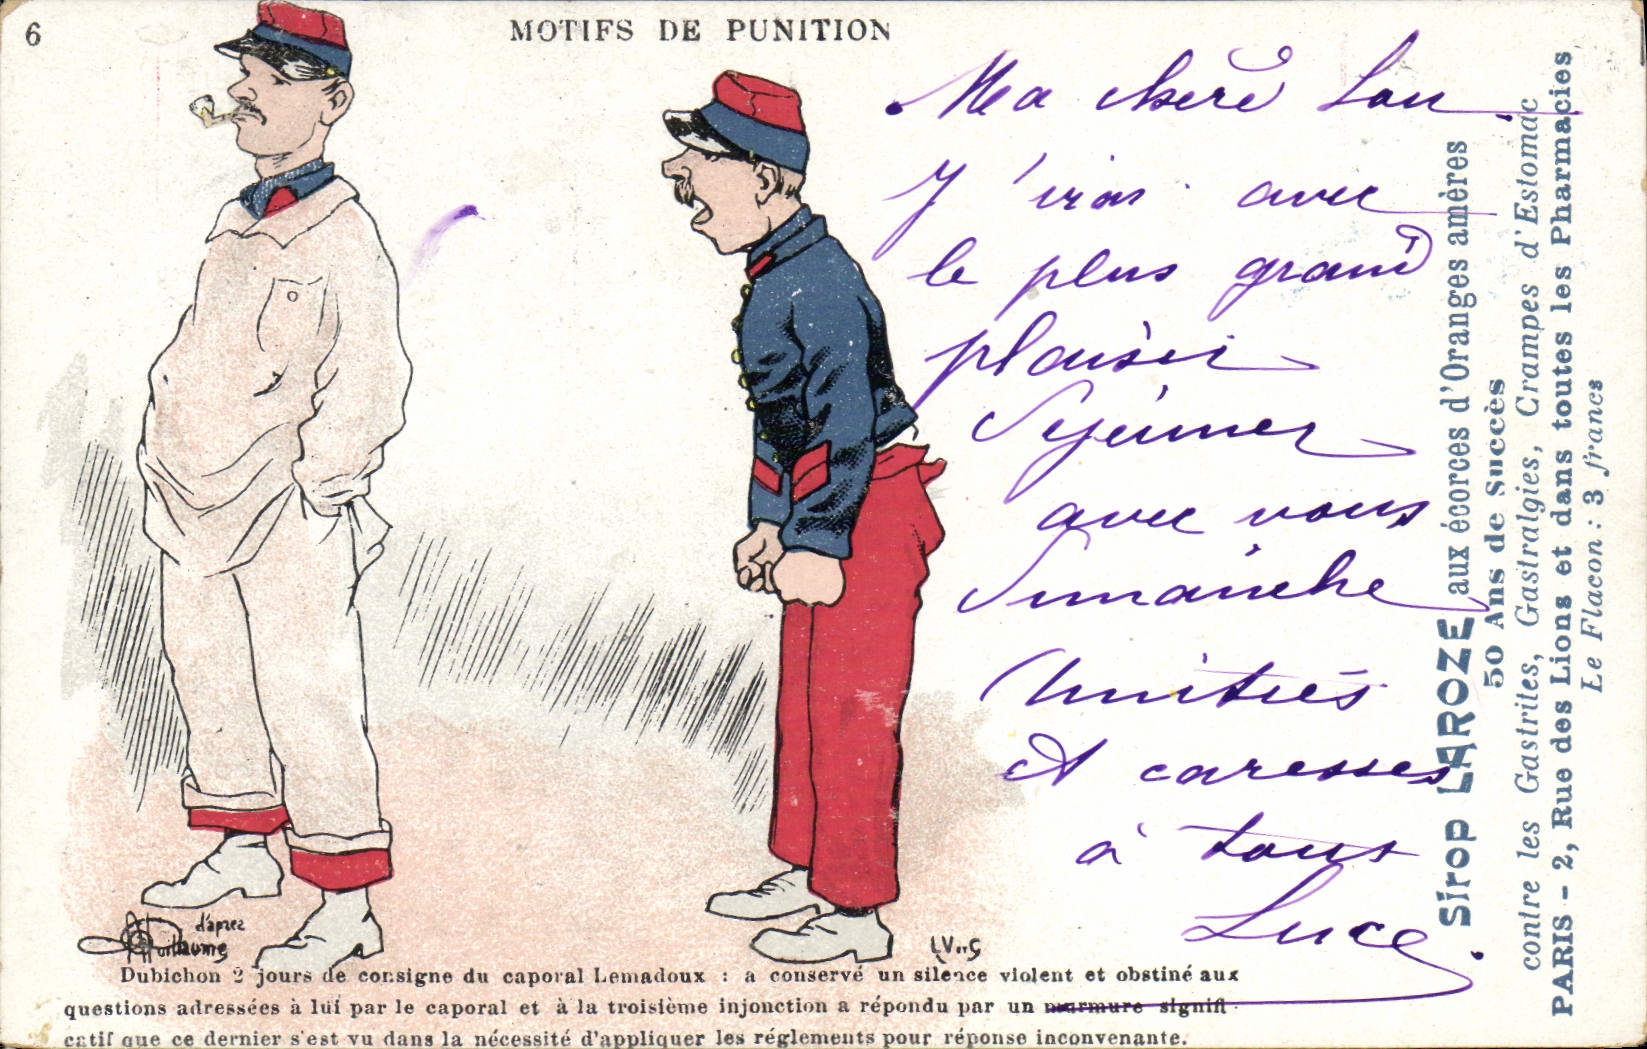 6
MOTIFS DE PUNITION
Ma chère Lou
J'irai avec
le plus grand
plaisir
déjeuner
avec vous
Dimanche
Amitiés
et caresses
à tous
Luce
Sirop LAROZE aux écorces d'Oranges amères
50 Ans de Succès
contre les Gastrites, Gastralgies, Crampes d'Estomac
PARIS - 2, Rue des Lions et dans toutes les Pharmacies
Le Flacon : 3 francs
d'après
A Guillaume
Dubichon 2 jours de consigne du caporal Lemadoux : a conservé un silence violent et obstiné aux
questions adressées à lui par le caporal et à la troisième injonction a répondu par un murmure signifi-
catif que ce dernier s'est vu dans la nécessité d'appliquer les réglements pour réponse inconvenante.